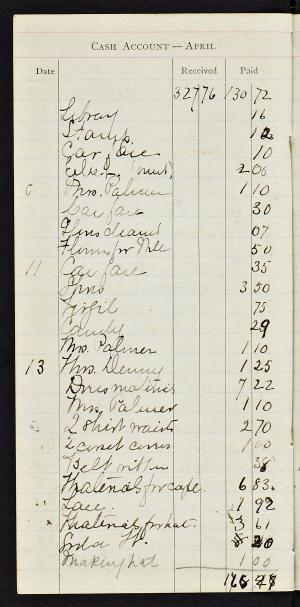 CASH ACCOUNT — APRIL
Date Received Paid
327 76 130 72
Library 16
Stamp. 12
Car fare 10
2 00
6 Mrs. Palmer 1 10
Car fare 30
cleaned 07
Flowers for 50
11 Car fare 35
Shoes 3 50
75
Candy 29
Mrs Palmer 1 10
13 Mrs. Denny 1 25
Dress materials 7 22
Mrs Palmer 1 10
2 Shirt waists 2 70
2 corset covers 1 00
Belt ribbon 38
Materials for cape. 6 83
Lace. 1 92
Materials for hat. 3 61
Soda 20
Making hat 1 00